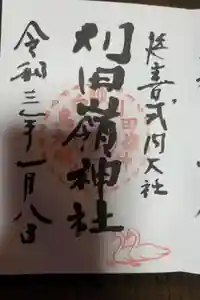 延喜式内大社
刈田嶺神社
令和三年一月八日